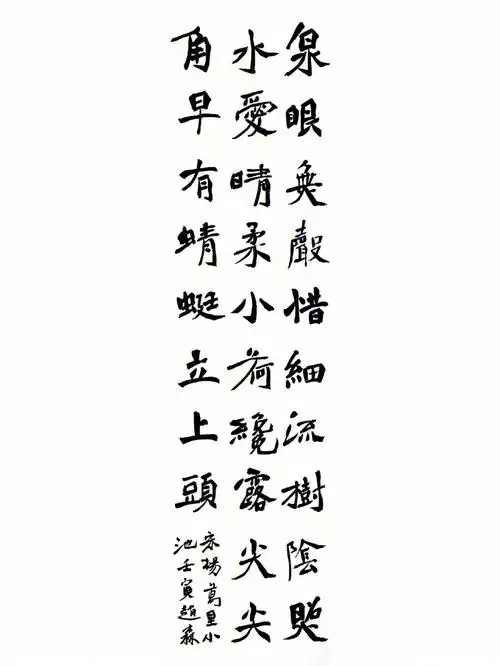 泉眼無聲惜細流樹陰照
水愛晴柔小荷纔露尖尖
角早有蜻蜓立上頭
宋楊萬里小
池壬寅趙森